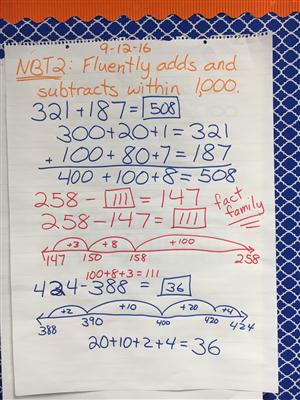 9-12-16
NBT2: Fluently adds and
subtracts within 1,000.
321+187=508
300+20+1=321
+ 100+80+7=187
400+100+8=508
258-111=147
258-147=111
fact
family
+3 +8 +100
147 150 158 258
100+8+3=111
424-388=36
+2 +10 +20 +4
388 390 400 420 424
20+10+2+4=36